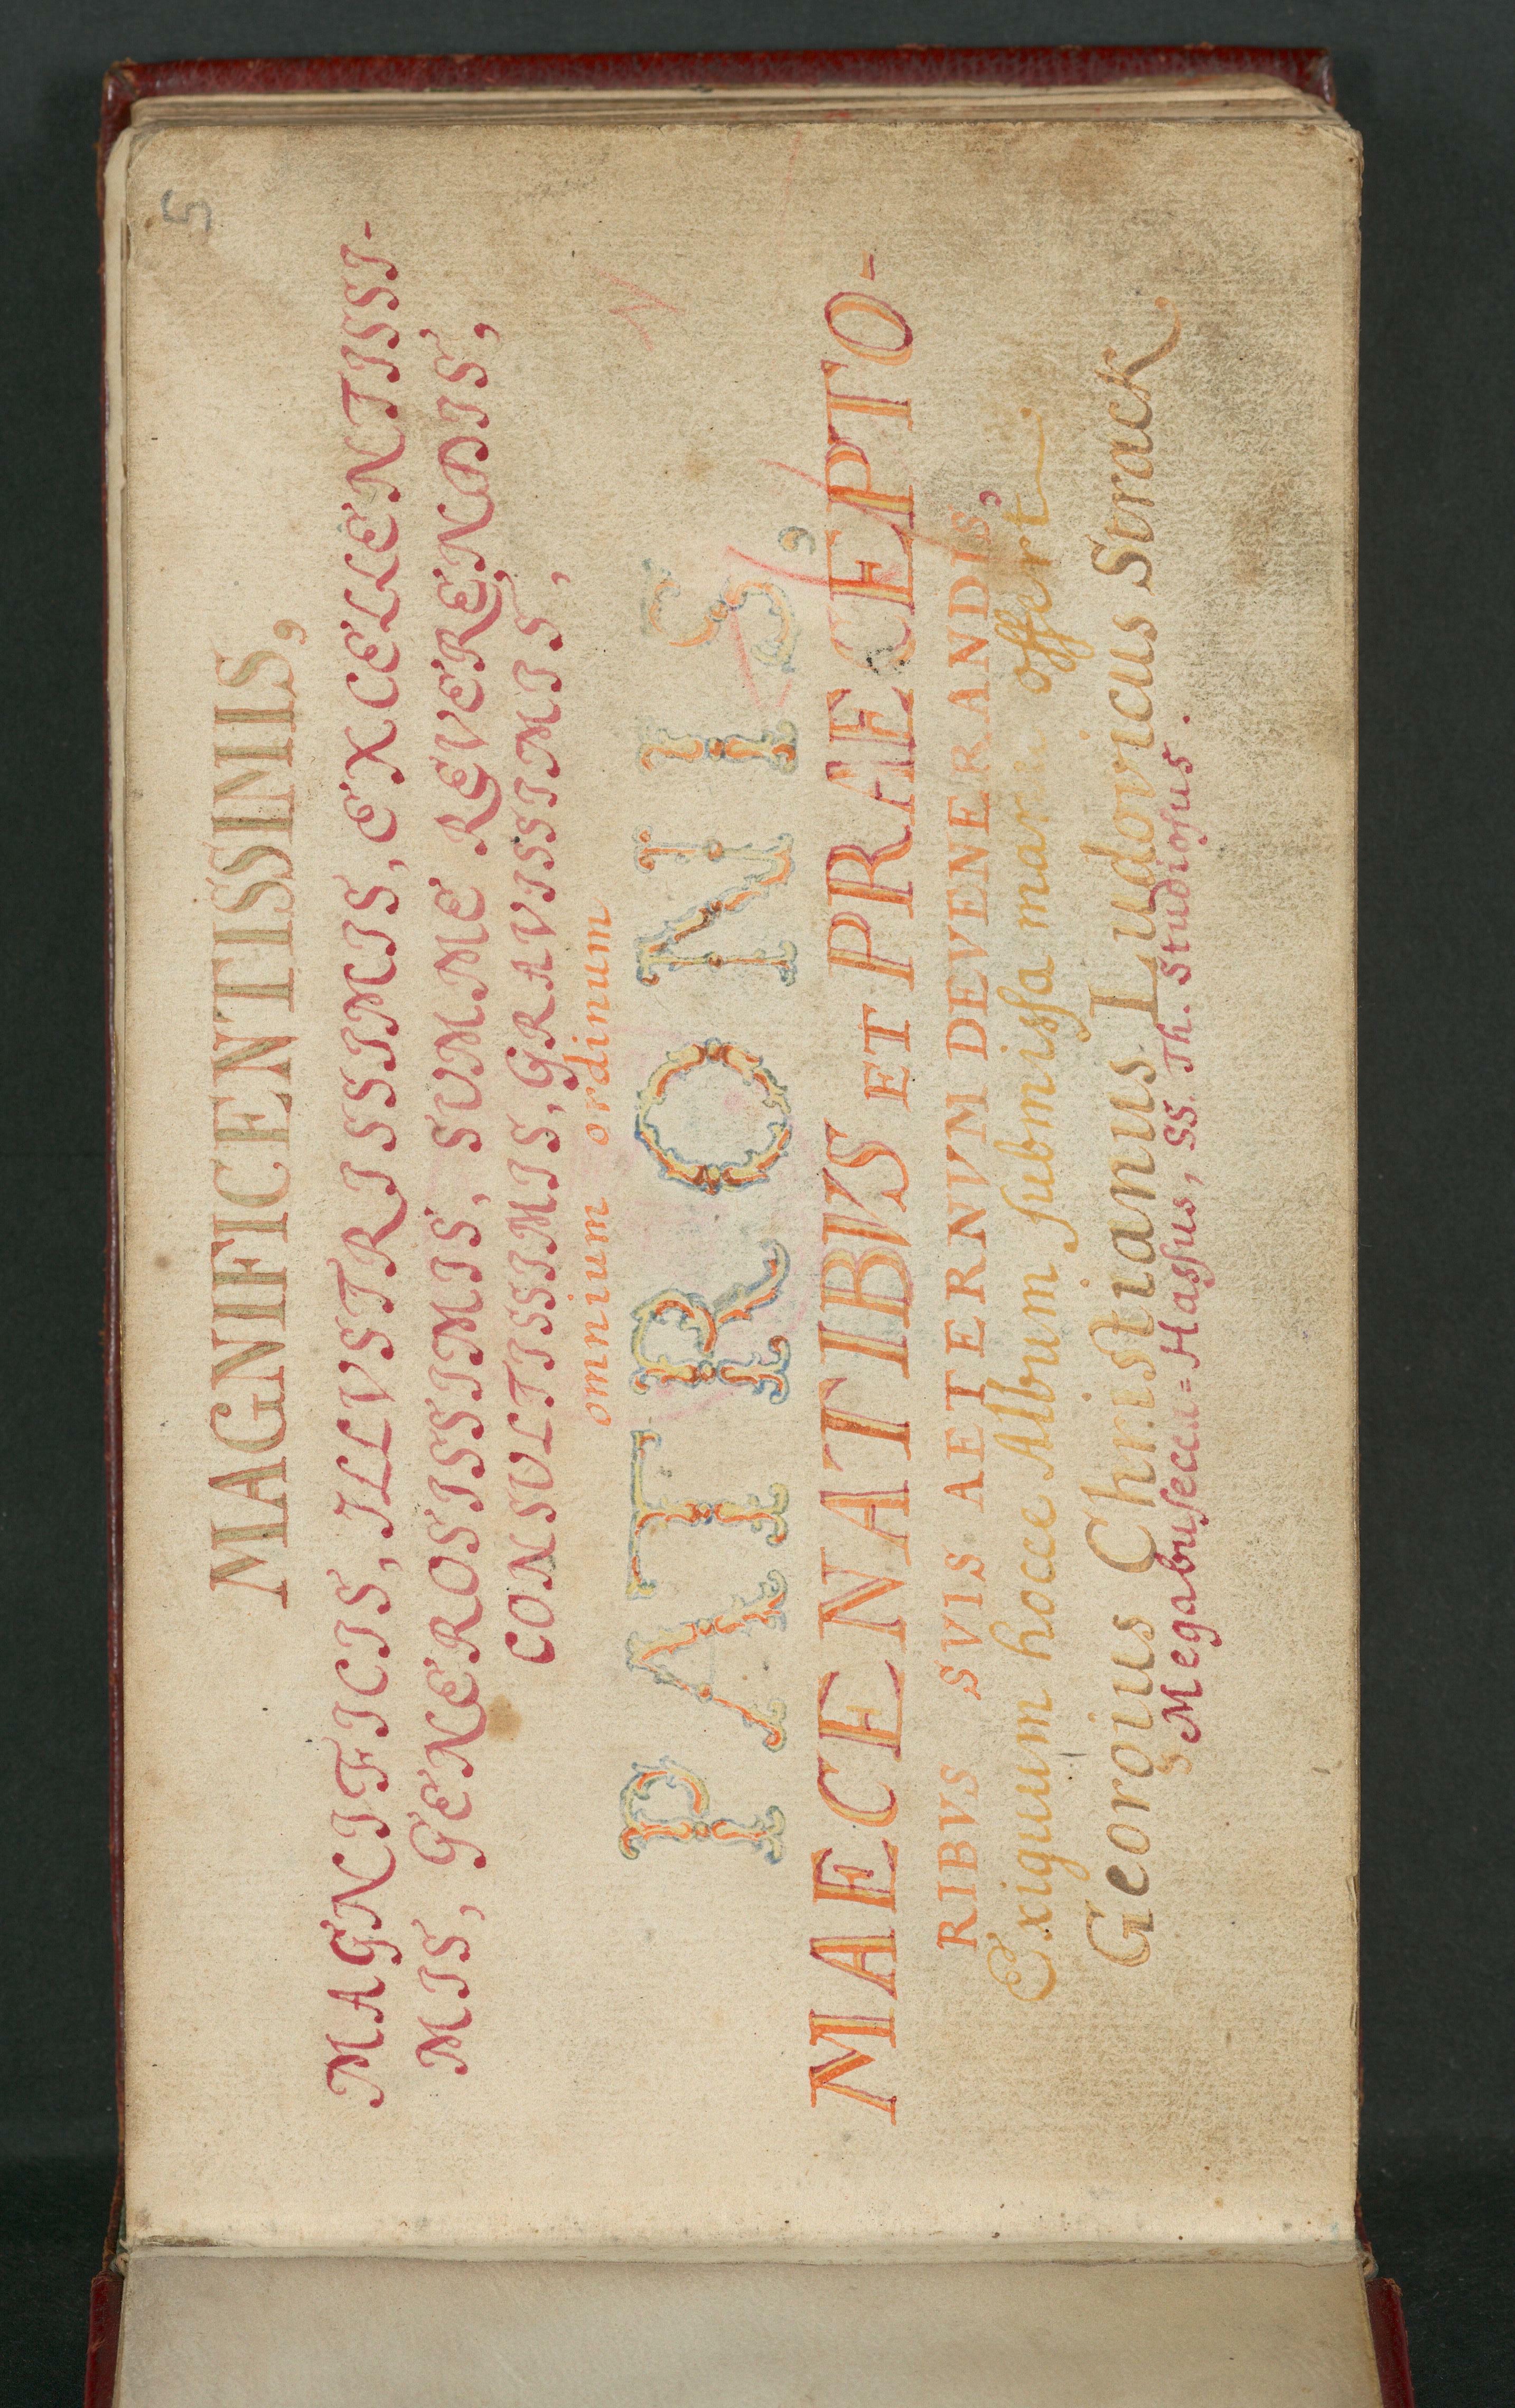 5
MAGNIFICENTISSIMIS,
MAGNIFICIS, ILLVSTRISSIMIS, EXCELLENTISSI-
MIS, GENEROSISSIMIS, SUMME REVERENDIS,
CONSULTISSIMIS, GRAVISSIMIS,
omnium ordinum
PATRONIS,
MAECENATIBVS ET PRAECEPTO-
RIBVS SVIS AETERNVM DEVENERANDIS,
Exiguum hocce Album ſubmiſsa manu offert
Georgius Christianus Ludovicus Strack
Megabuſecca=Haſsus, SS. Th. Studioſus.